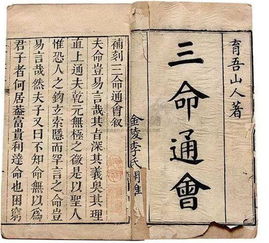 育吾山人著
三命通會
補刻三命通會叙
夫命豈易言哉其旨深其義奧其理
直上通夫乾元無極之後是以聖人
惟恐人之鉤玄索隱而罕言之命豈
易言哉然夫子又曰不知命無以為
君子者何居蓋富貴利達命也困窮